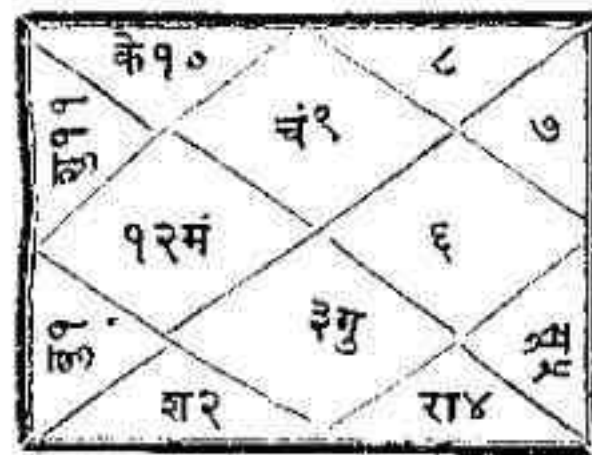 के१०
८
शु११
चं९
७
१२मं
६
३गु
श२
रा४